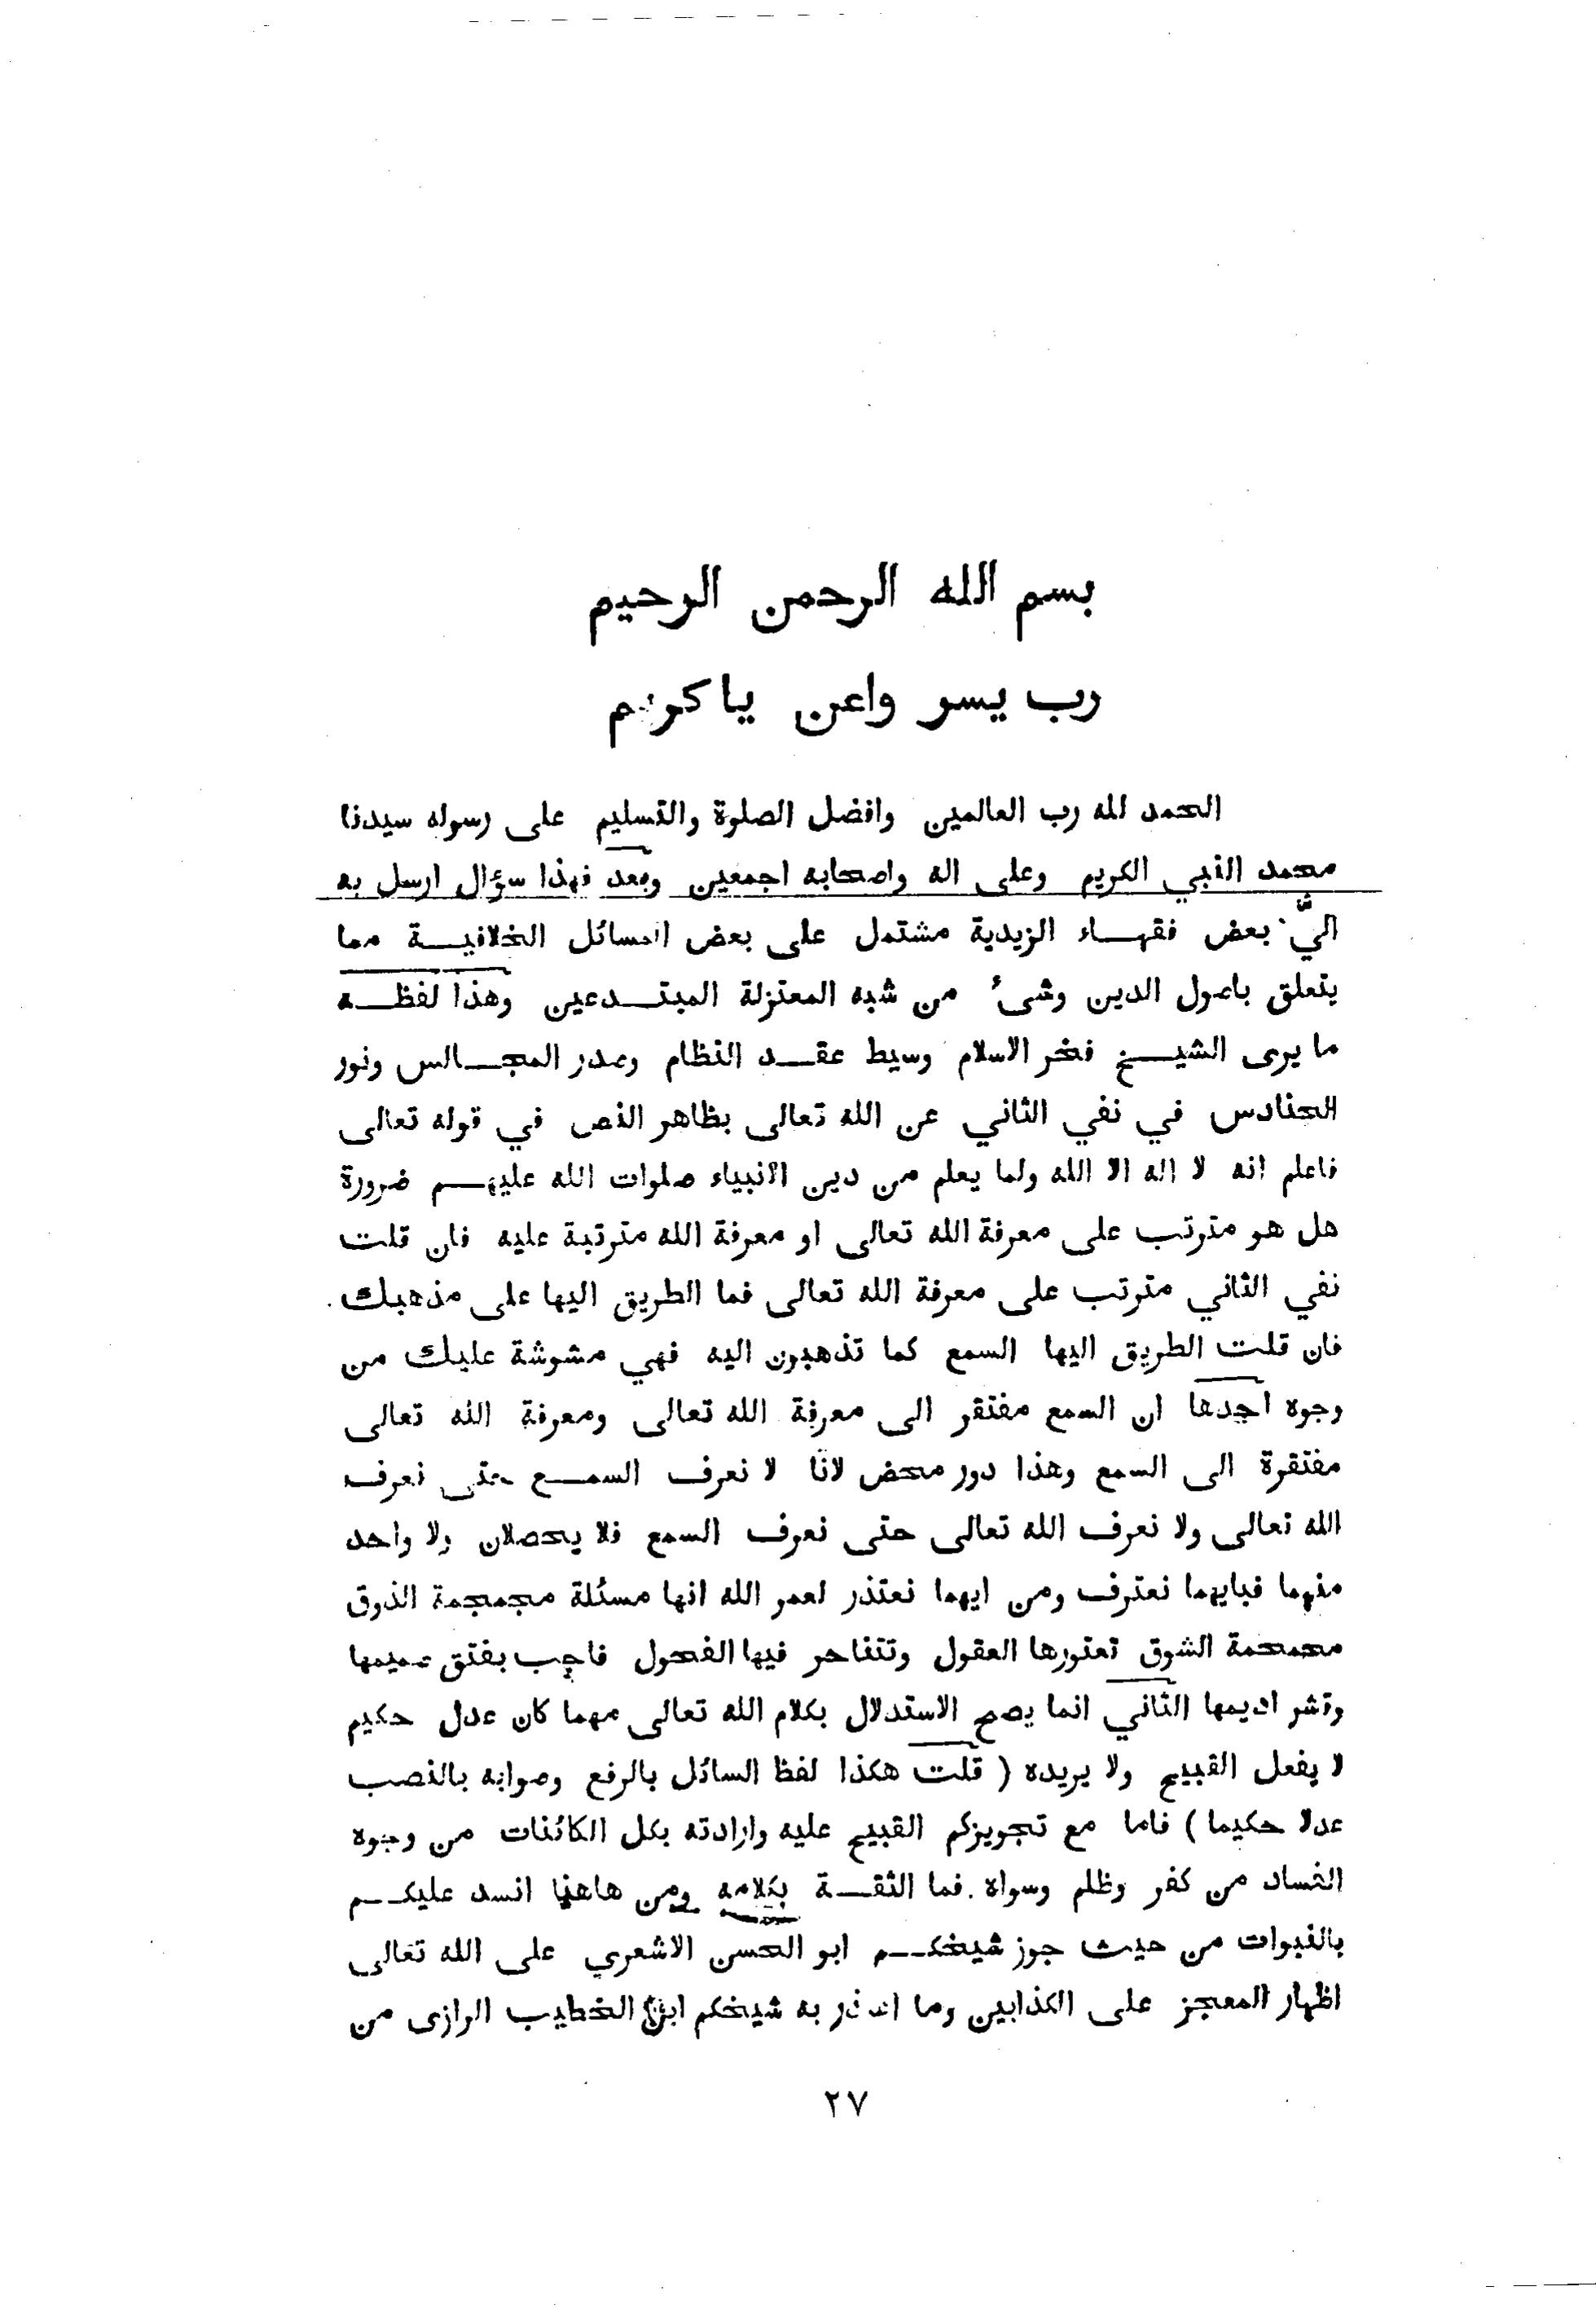 بسم الله الرحمن الرحيم
رب يسر واعن ياكريم
الحمد لله رب العالمين وافضل الصلوة والتسليم على رسوله سيدنا
محمد النبي الكريم وعلى اله واصحابه اجمعين وبعد فهذا سؤال ارسل به
اليَّ بعض فقهاء الزيدية مشتمل على بعض المسائل الخلافية مما
يتعلق باصول الدين وشيء من شبه المعتزلة المبتدعين وهذا لفظه
ما يرى الشيخ فخر الاسلام وسيط عقد النظام وصدر المجالس ونور
الحنادس في نفي الثاني عن الله تعالى بظاهر النص في قوله تعالى
فاعلم انه لا اله الا الله ولما يعلم من دين الانبياء صلوات الله عليهم ضرورة
هل هو مترتب على معرفة الله تعالى او معرفة الله مترتبة عليه فان قلت
نفي الثاني مترتب على معرفة الله تعالى فما الطريق اليها على مذهبك.
فان قلت الطريق اليها السمع كما تذهبون اليه فهي مشوشة عليك من
وجوه احدها ان السمع مفتقر الى معرفة الله تعالى ومعرفة الله تعالى
مفتقرة الى السمع وهذا دور محض لانا لا نعرف السمع حتى نعرف
الله تعالى ولا نعرف الله تعالى حتى نعرف السمع فلا يحصلان ولا واحد
منهما فبايهما نعترف ومن ايهما نعتذر لعمر الله انها مسئلة مجمجمة الذوق
محمحمة الشوق تعتورها العقول وتتناحر فيها الفحول فاجب بفتق صميمها
وقشر اديمها الثاني انما يصح الاستدلال بكلام الله تعالى مهما كان عدل حكيم
لا يفعل القبيح ولا يريده ( قلت هكذا لفظ السائل بالرفع وصوابه بالنصب
عدلا حكيما ) فاما مع تجويزكم القبيح عليه وارادته بكل الكائنات من وجوه
الفساد من كفر وظلم وسواه. فما الثقة بكلامه ومن هاهنا انسد عليكم
بالنبوات من حيث جوز شيخكم ابو الحسن الاشعري على الله تعالى
اظهار المعجز على الكذابين وما اعتذر به شيخكم ابن الخطيب الرازى من
٢٧